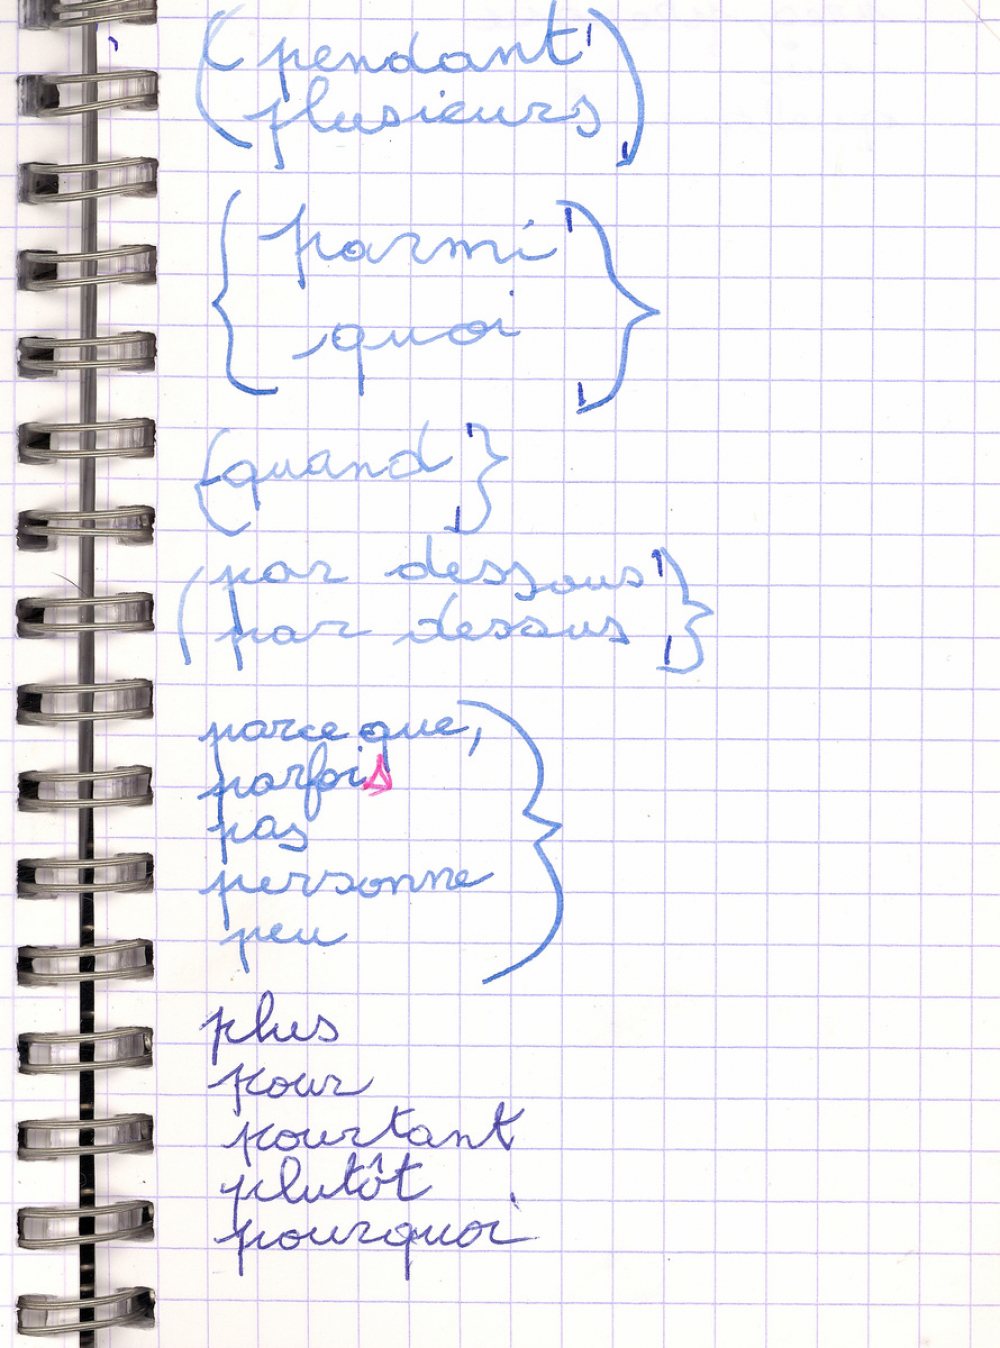 ( pendant )
plusieurs
{ parmi }
quoi
{ quand }
( par dessous }
par dessus
parce que,
parfois
pas
personne
peu
plus
pour
pourtant
plutôt
pourquoi